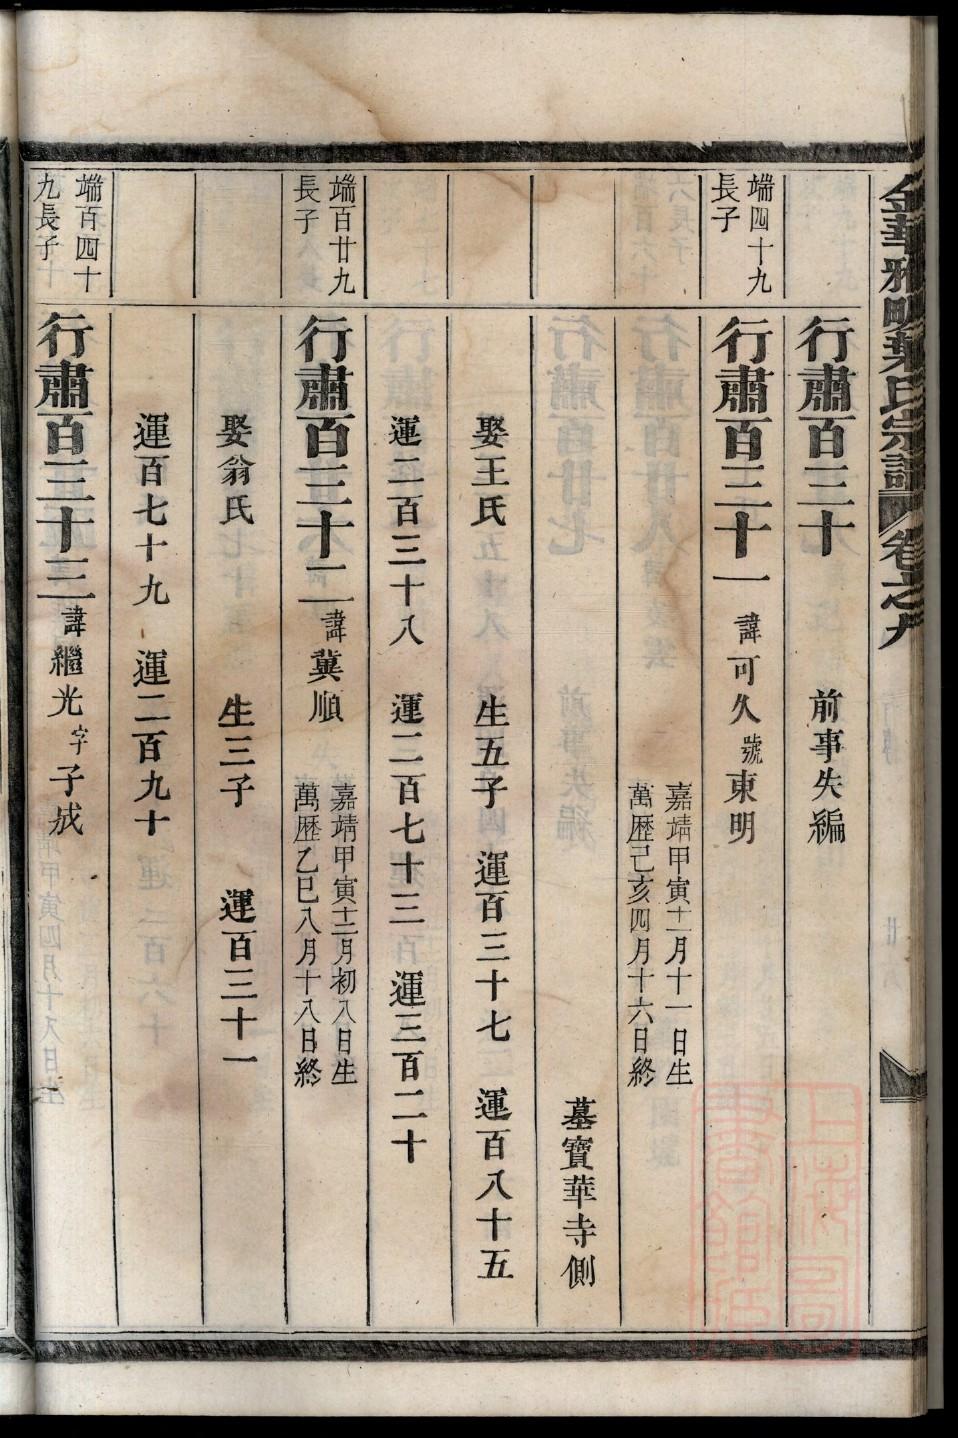 金華雅畈葉氏宗譜 卷之九
行肅百三十 前事失編
端四十九
長子
行肅百三十一 諱可久號東明
嘉靖甲寅十一月十一日生
萬歷己亥四月十六日終
墓寶華寺側
娶王氏 生五子 運百三十七 運百八十五
運二百三十八 運二百七十三 運三百二十
端百廿九
長子
行肅百三十二 諱冀順
嘉靖甲寅十二月初八日生
萬歷乙巳八月十八日終
娶翁氏 生三子 運百三十一
運百七十九 運二百九十
端百四十
九長子
行肅百三十三 諱繼光字子成
上海圖書館藏